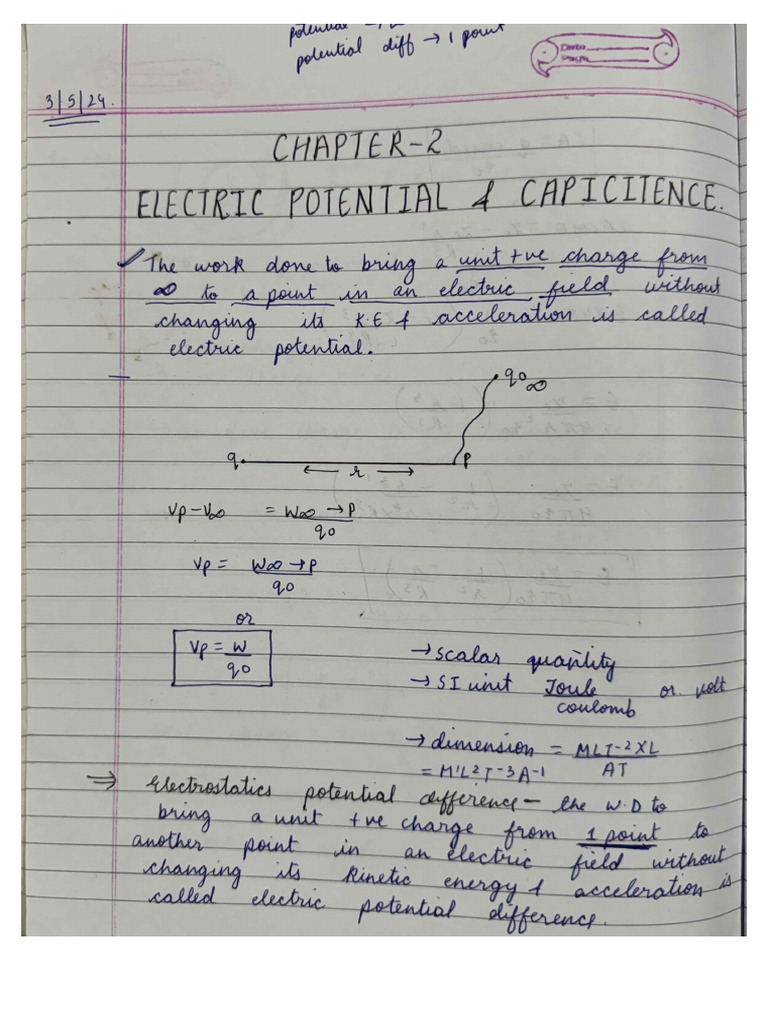 potential
potential diff → 1 point
Date
Page
3/5/24.
CHAPTER-2
ELECTRIC POTENTIAL & CAPICITENCE.
The work done to bring a unit +ve charge from
∞ to a point in an electric field without
changing its K.E & acceleration is called
electric potential.
q0 ∞
q
← r →
P
Vp-V∞ = W∞→P
q0
Vp = W∞→P
q0
or
Vp = W
q0
→ scalar quantity
→ SI unit Joule or volt
coulomb
→ dimension = MLT-2XL
AT
= M1L2T-3A-1
⇒ Electrostatics potential difference- the W.D to
bring a unit +ve charge from 1 point to
another point in an electric field without
changing its kinetic energy & acceleration is
called electric potential difference.